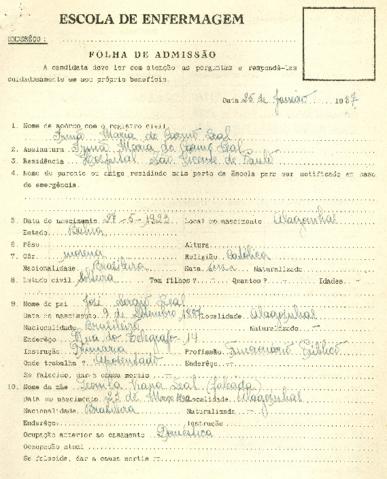 ESCOLA DE ENFERMAGEM
ENDERÊÇO:
FOLHA DE ADMISSÃO
A candidata deve ler com atenção as perguntas e respondê-las
cuidadosamente em seu próprio benefício.
Data 25 de Janeiro 1957
1. Nome de acôrdo com o registro civil
Irmã Maria do Carmo Leal
2. Assinatura Irmã Maria do Carmo Leal
3. Residência Hospital São Vicente de Paulo
4. Nome de parente ou amigo residindo mais perto da Escola para ser notificado em caso
de emergência.
5. Data do nascimento 29-5-1923 Local do nascimento Alagoinhas
Estado Bahia
6. Pêso Altura
7. Côr morena Religião Católica
Nacionalidade Brasileira Nata Naturalizado
8. Estado civil solteira Tem filhos? Quantos? Idades
9. Nome do pai José Leal
Data do nascimento 9 de Setembro 1887 Localidade Alagoinhas
Nacionalidade Brasileiro Naturalizado
Enderêço Rua do Telégrafo - 14
Instrução Primária Profissão Funcionário Público
Onde trabalha? Aposentado
Se falecido, dar a causa mortis
10. Nome da mãe Viana Leal (falecida)
Data do nascimento 23 de Março Localidade Alagoinhas
Nacionalidade Brasileira Naturalizada
Enderêço Instrução
Ocupação anterior ao casamento Doméstica
Ocupação atual
Se falecida, dar a causa mortis